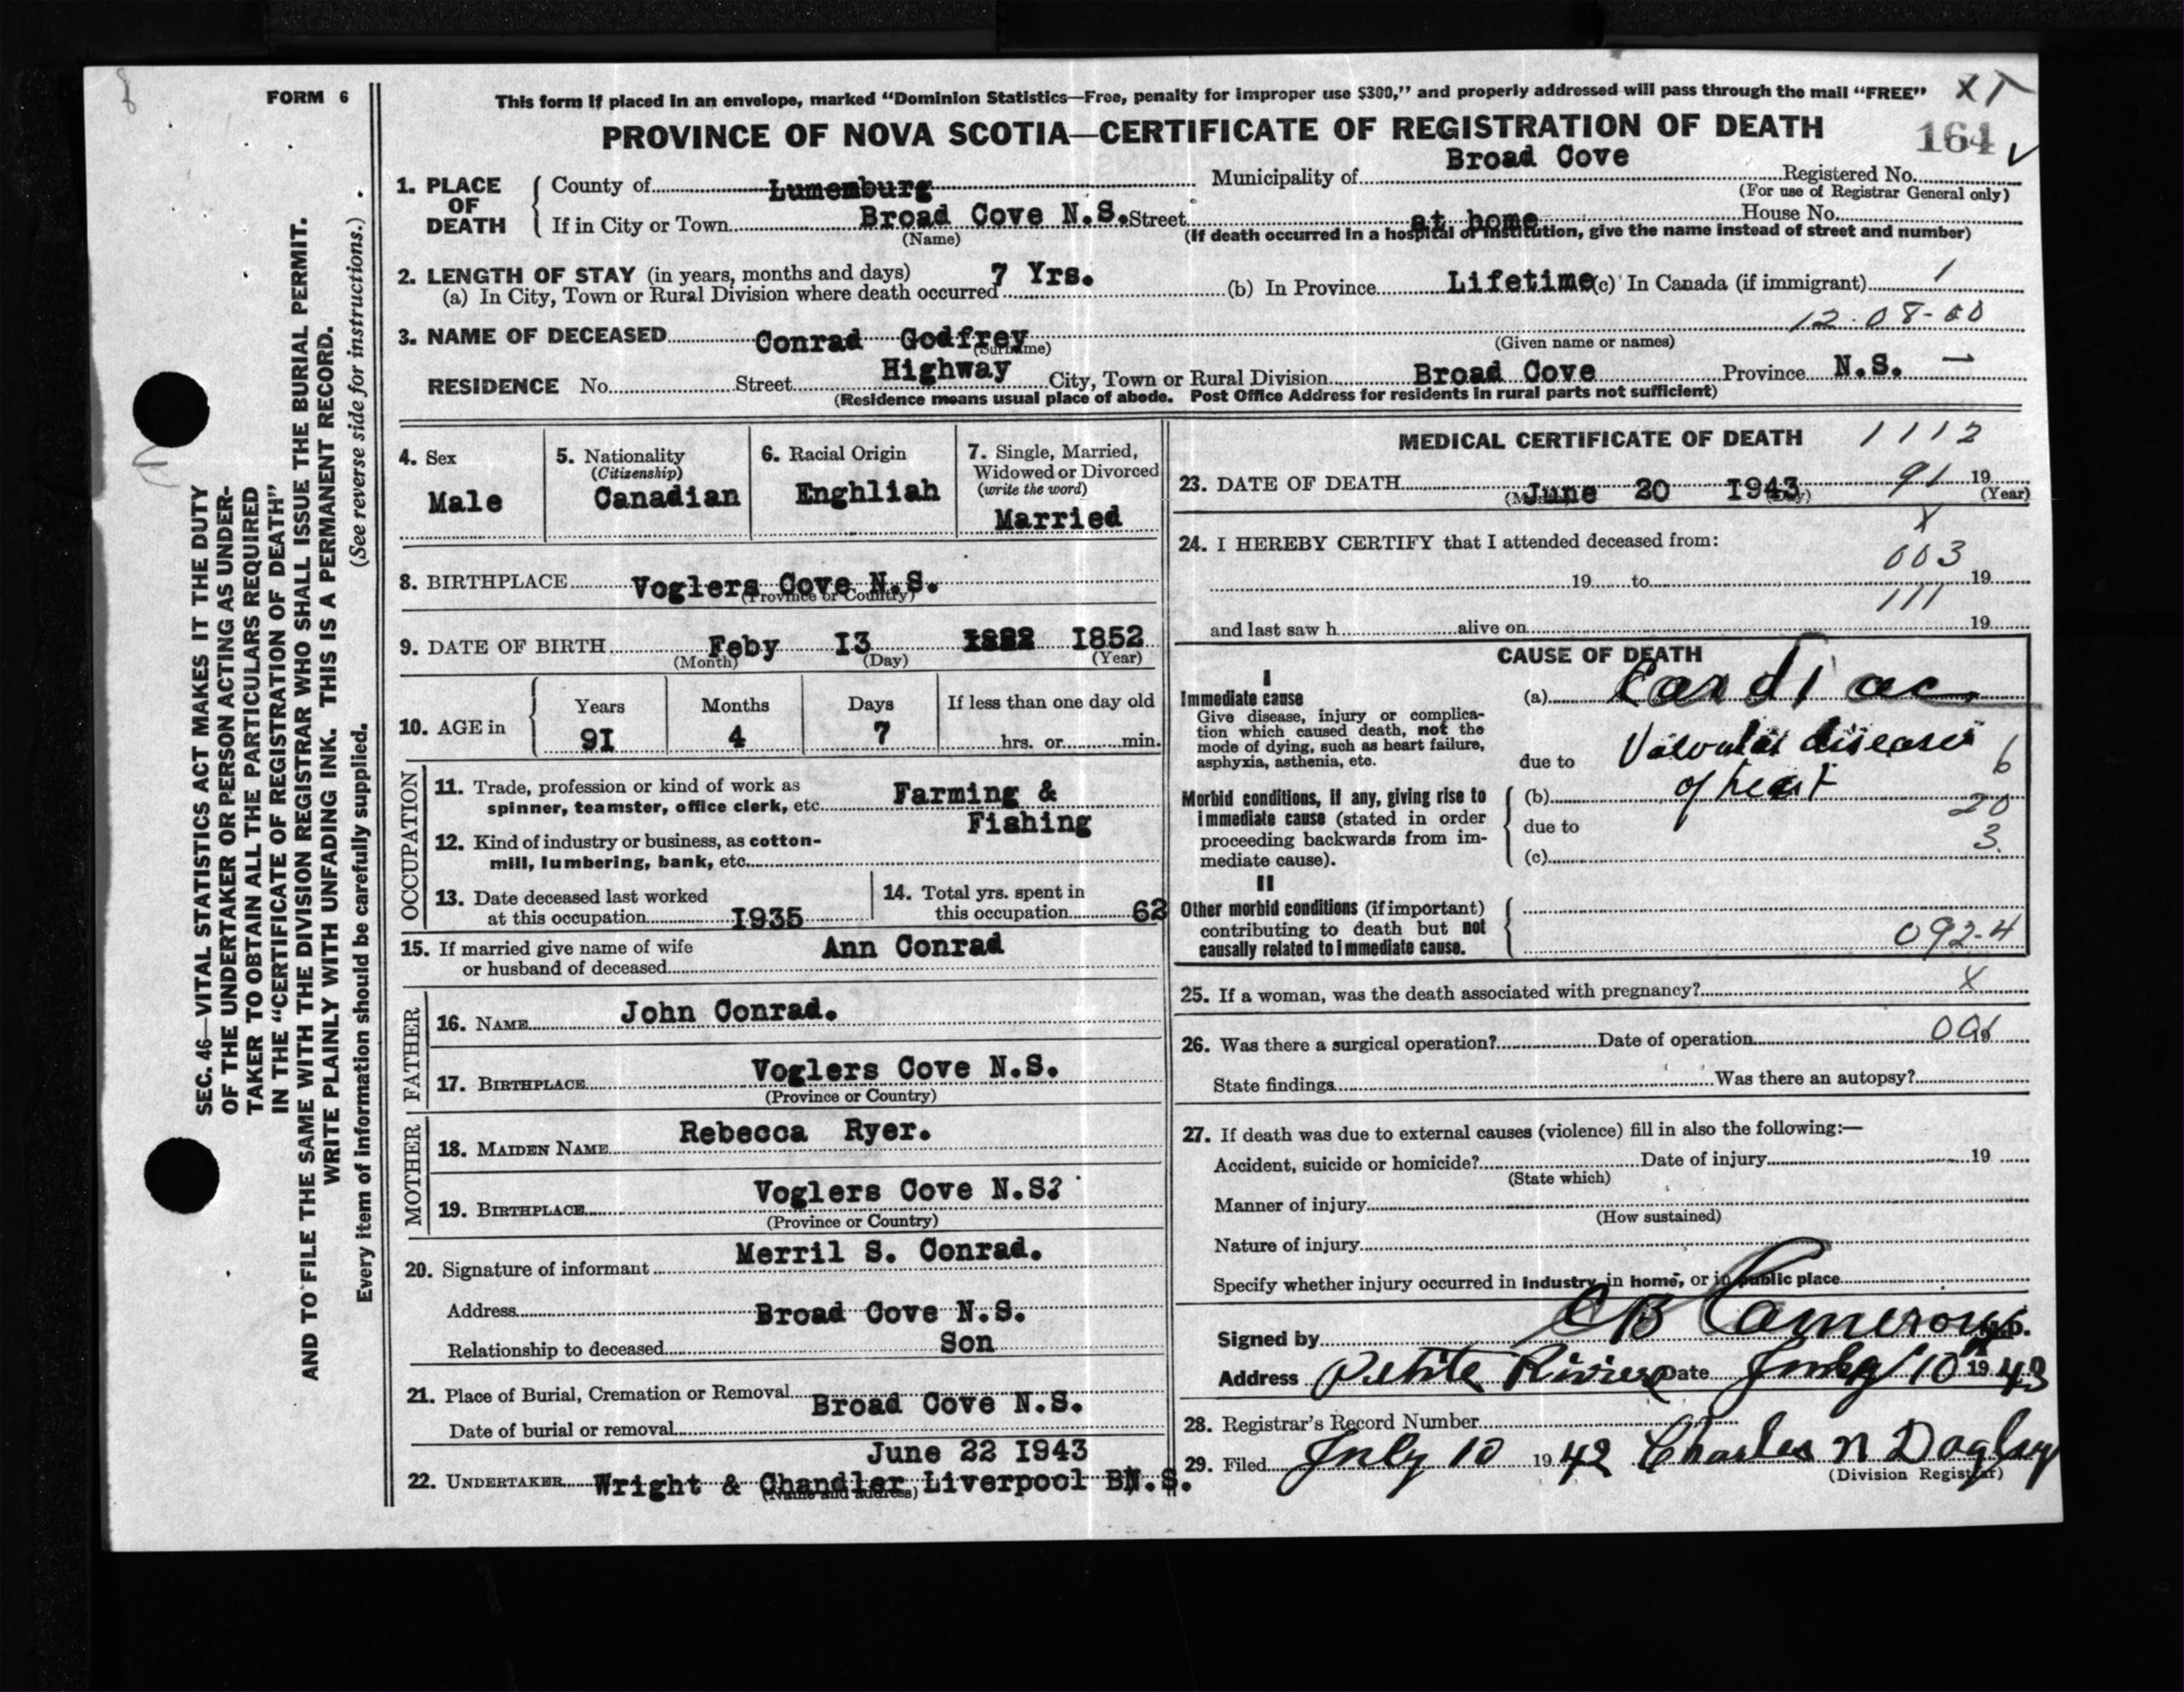 FORM 6
This form if placed in an envelope, marked “Dominion Statistics—Free, penalty for improper use $300,” and properly addressed will pass through the mail “FREE” X
PROVINCE OF NOVA SCOTIA—CERTIFICATE OF REGISTRATION OF DEATH
164
SEC. 46—VITAL STATISTICS ACT MAKES IT THE DUTY
OF THE UNDERTAKER OR PERSON ACTING AS UNDER-
TAKER TO OBTAIN ALL THE PARTICULARS REQUIRED
IN THE “CERTIFICATE OF REGISTRATION OF DEATH”
AND TO FILE THE SAME WITH THE DIVISION REGISTRAR WHO SHALL ISSUE THE BURIAL PERMIT.
WRITE PLAINLY WITH UNFADING INK. THIS IS A PERMANENT RECORD.
Every item of information should be carefully supplied. (See reverse side for instructions.)
1. PLACE OF DEATH
County of Lumemburg Municipality of Broad Cove Registered No.
(For use of Registrar General only)
If in City or Town Broad Cove N.S. Street at home House No.
(Name) (If death occurred in a hospital or institution, give the name instead of street and number)
2. LENGTH OF STAY (in years, months and days)
(a) In City, Town or Rural Division where death occurred 7 Yrs. (b) In Province Lifetime (c) In Canada (if immigrant) 1
12-08-00
3. NAME OF DECEASED Conrad Godfrey
(Surname) (Given name or names)
RESIDENCE No. Street Highway City, Town or Rural Division Broad Cove Province N.S.
(Residence means usual place of abode. Post Office Address for residents in rural parts not sufficient)
4. Sex
Male
5. Nationality
(Citizenship)
Canadian
6. Racial Origin
Enghliah
7. Single, Married,
Widowed or Divorced
(write the word)
Married
8. BIRTHPLACE Voglers Cove N.S.
(Province or Country)
9. DATE OF BIRTH Feby I3 I852
(Month) (Day) (Year)
10. AGE in
Years Months Days If less than one day old
9I 4 7 hrs. or min.
OCCUPATION
11. Trade, profession or kind of work as
spinner, teamster, office clerk, etc. Farming &
Fishing
12. Kind of industry or business, as cotton-
mill, lumbering, bank, etc.
13. Date deceased last worked
at this occupation I935
14. Total yrs. spent in
this occupation 62
15. If married give name of wife
or husband of deceased Ann Conrad
FATHER
16. NAME John Conrad.
17. BIRTHPLACE Voglers Cove N.S.
(Province or Country)
MOTHER
18. MAIDEN NAME Rebecca Ryer.
19. BIRTHPLACE Voglers Cove N.S?
(Province or Country)
20. Signature of informant Merril S. Conrad.
Address Broad Cove N.S.
Relationship to deceased Son
21. Place of Burial, Cremation or Removal Broad Cove N.S.
Date of burial or removal
June 22 I943
22. UNDERTAKER Wright & Chandler Liverpool N.S.
(Name and address)
MEDICAL CERTIFICATE OF DEATH 1112
23. DATE OF DEATH June 20 I943 91 19
(Month) (Day) (Year)
X
24. I HEREBY CERTIFY that I attended deceased from:
003
19 to 19
111
and last saw h alive on 19
CAUSE OF DEATH
I
Immediate cause
Give disease, injury or complica-
tion which caused death, not the
mode of dying, such as heart failure,
asphyxia, asthenia, etc.
(a) Cardiac
due to Valvular disease
of heart
6
Morbid conditions, if any, giving rise to
immediate cause (stated in order
proceeding backwards from im-
mediate cause).
(b)
20
due to
3
(c)
II
Other morbid conditions (if important)
contributing to death but not
causally related to immediate cause.
092-4
25. If a woman, was the death associated with pregnancy? X
26. Was there a surgical operation? Date of operation 19
State findings Was there an autopsy?
27. If death was due to external causes (violence) fill in also the following:—
Accident, suicide or homicide? Date of injury 19
(State which)
Manner of injury
(How sustained)
Nature of injury
Specify whether injury occurred in Industry, in home, or in public place
Signed by C B Cameron M.D.
Address Petite Riviere Date July 10 1943
28. Registrar's Record Number
29. Filed July 10 1942 Charles N Dagley
(Division Registrar)